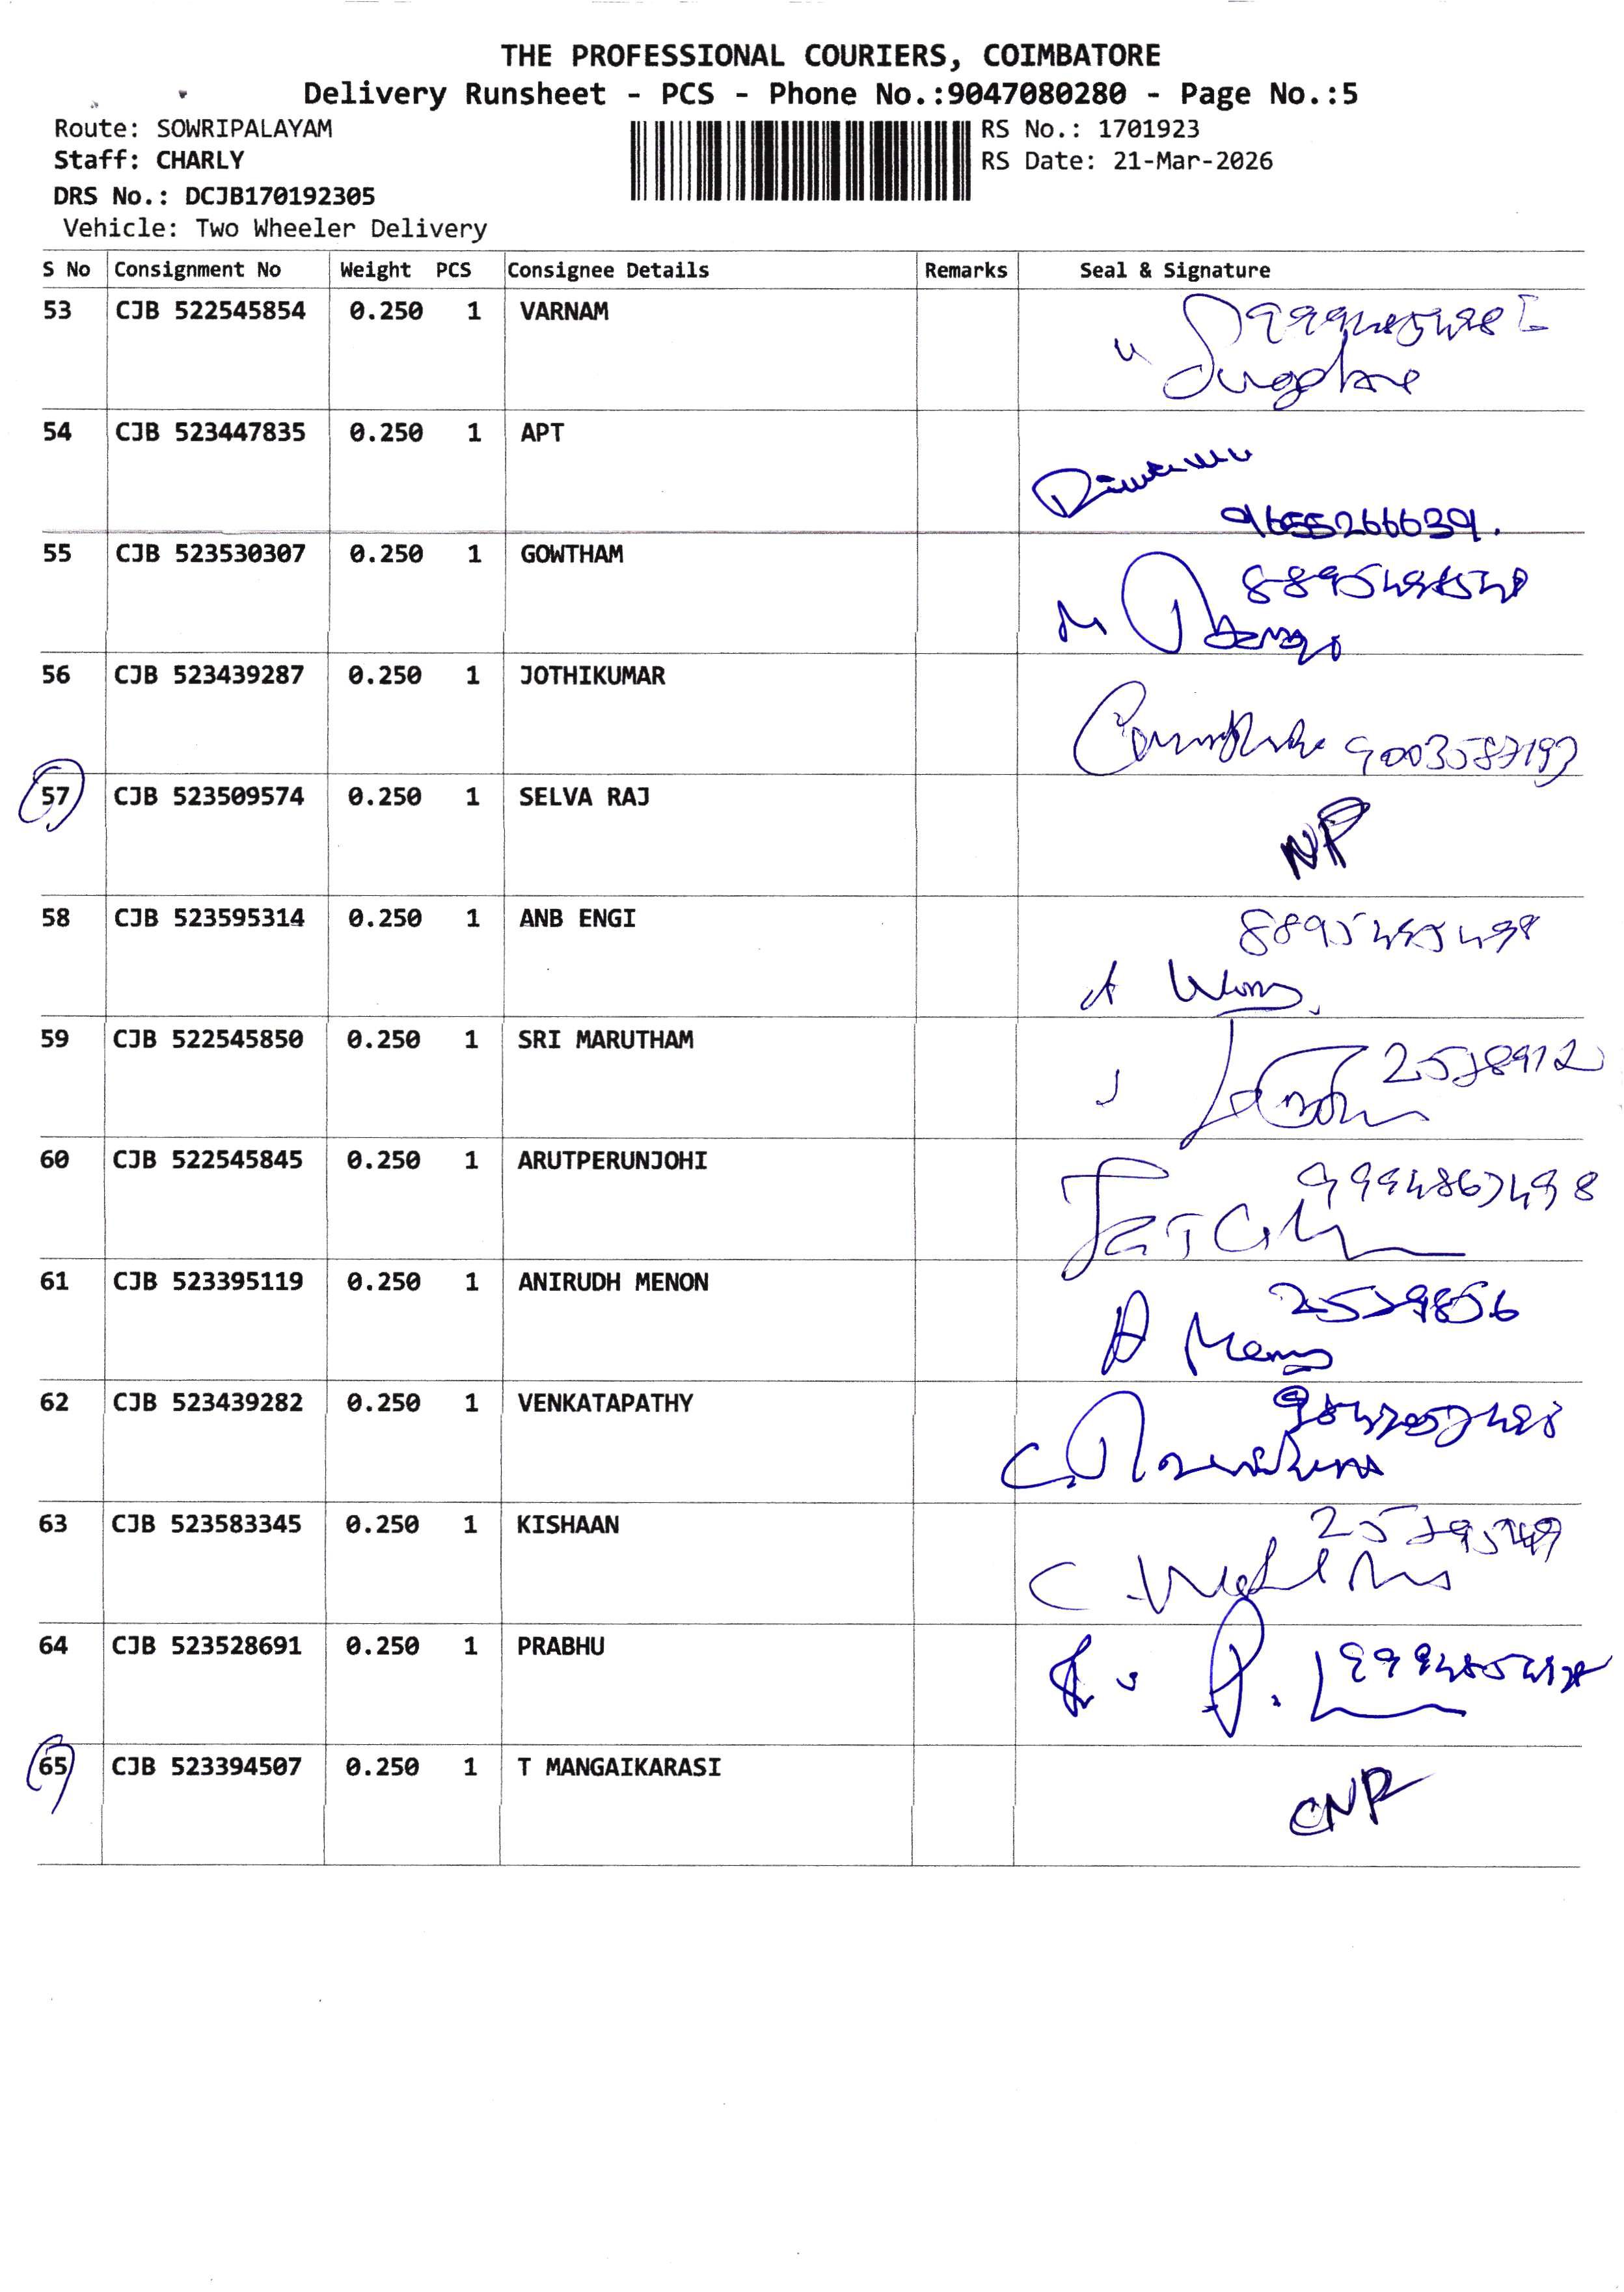 THE PROFESSIONAL COURIERS, COIMBATORE
Delivery Runsheet - PCS - Phone No.:9047080280 - Page No.:5
Route: SOWRIPALAYAM
RS No.: 1701923
Staff: CHARLY
RS Date: 21-Mar-2026
DRS No.: DCJB170192305
Vehicle: Two Wheeler Delivery
S No Consignment No Weight PCS Consignee Details Remarks Seal & Signature
53 CJB 522545854 0.250 1 VARNAM
54 CJB 523447835 0.250 1 APT
9655266639.
55 CJB 523530307 0.250 1 GOWTHAM
56 CJB 523439287 0.250 1 JOTHIKUMAR
57 CJB 523509574 0.250 1 SELVA RAJ
NP
58 CJB 523595314 0.250 1 ANB ENGI
59 CJB 522545850 0.250 1 SRI MARUTHAM
60 CJB 522545845 0.250 1 ARUTPERUNJOHI
61 CJB 523395119 0.250 1 ANIRUDH MENON
62 CJB 523439282 0.250 1 VENKATAPATHY
63 CJB 523583345 0.250 1 KISHAAN
64 CJB 523528691 0.250 1 PRABHU
65 CJB 523394507 0.250 1 T MANGAIKARASI
CNP